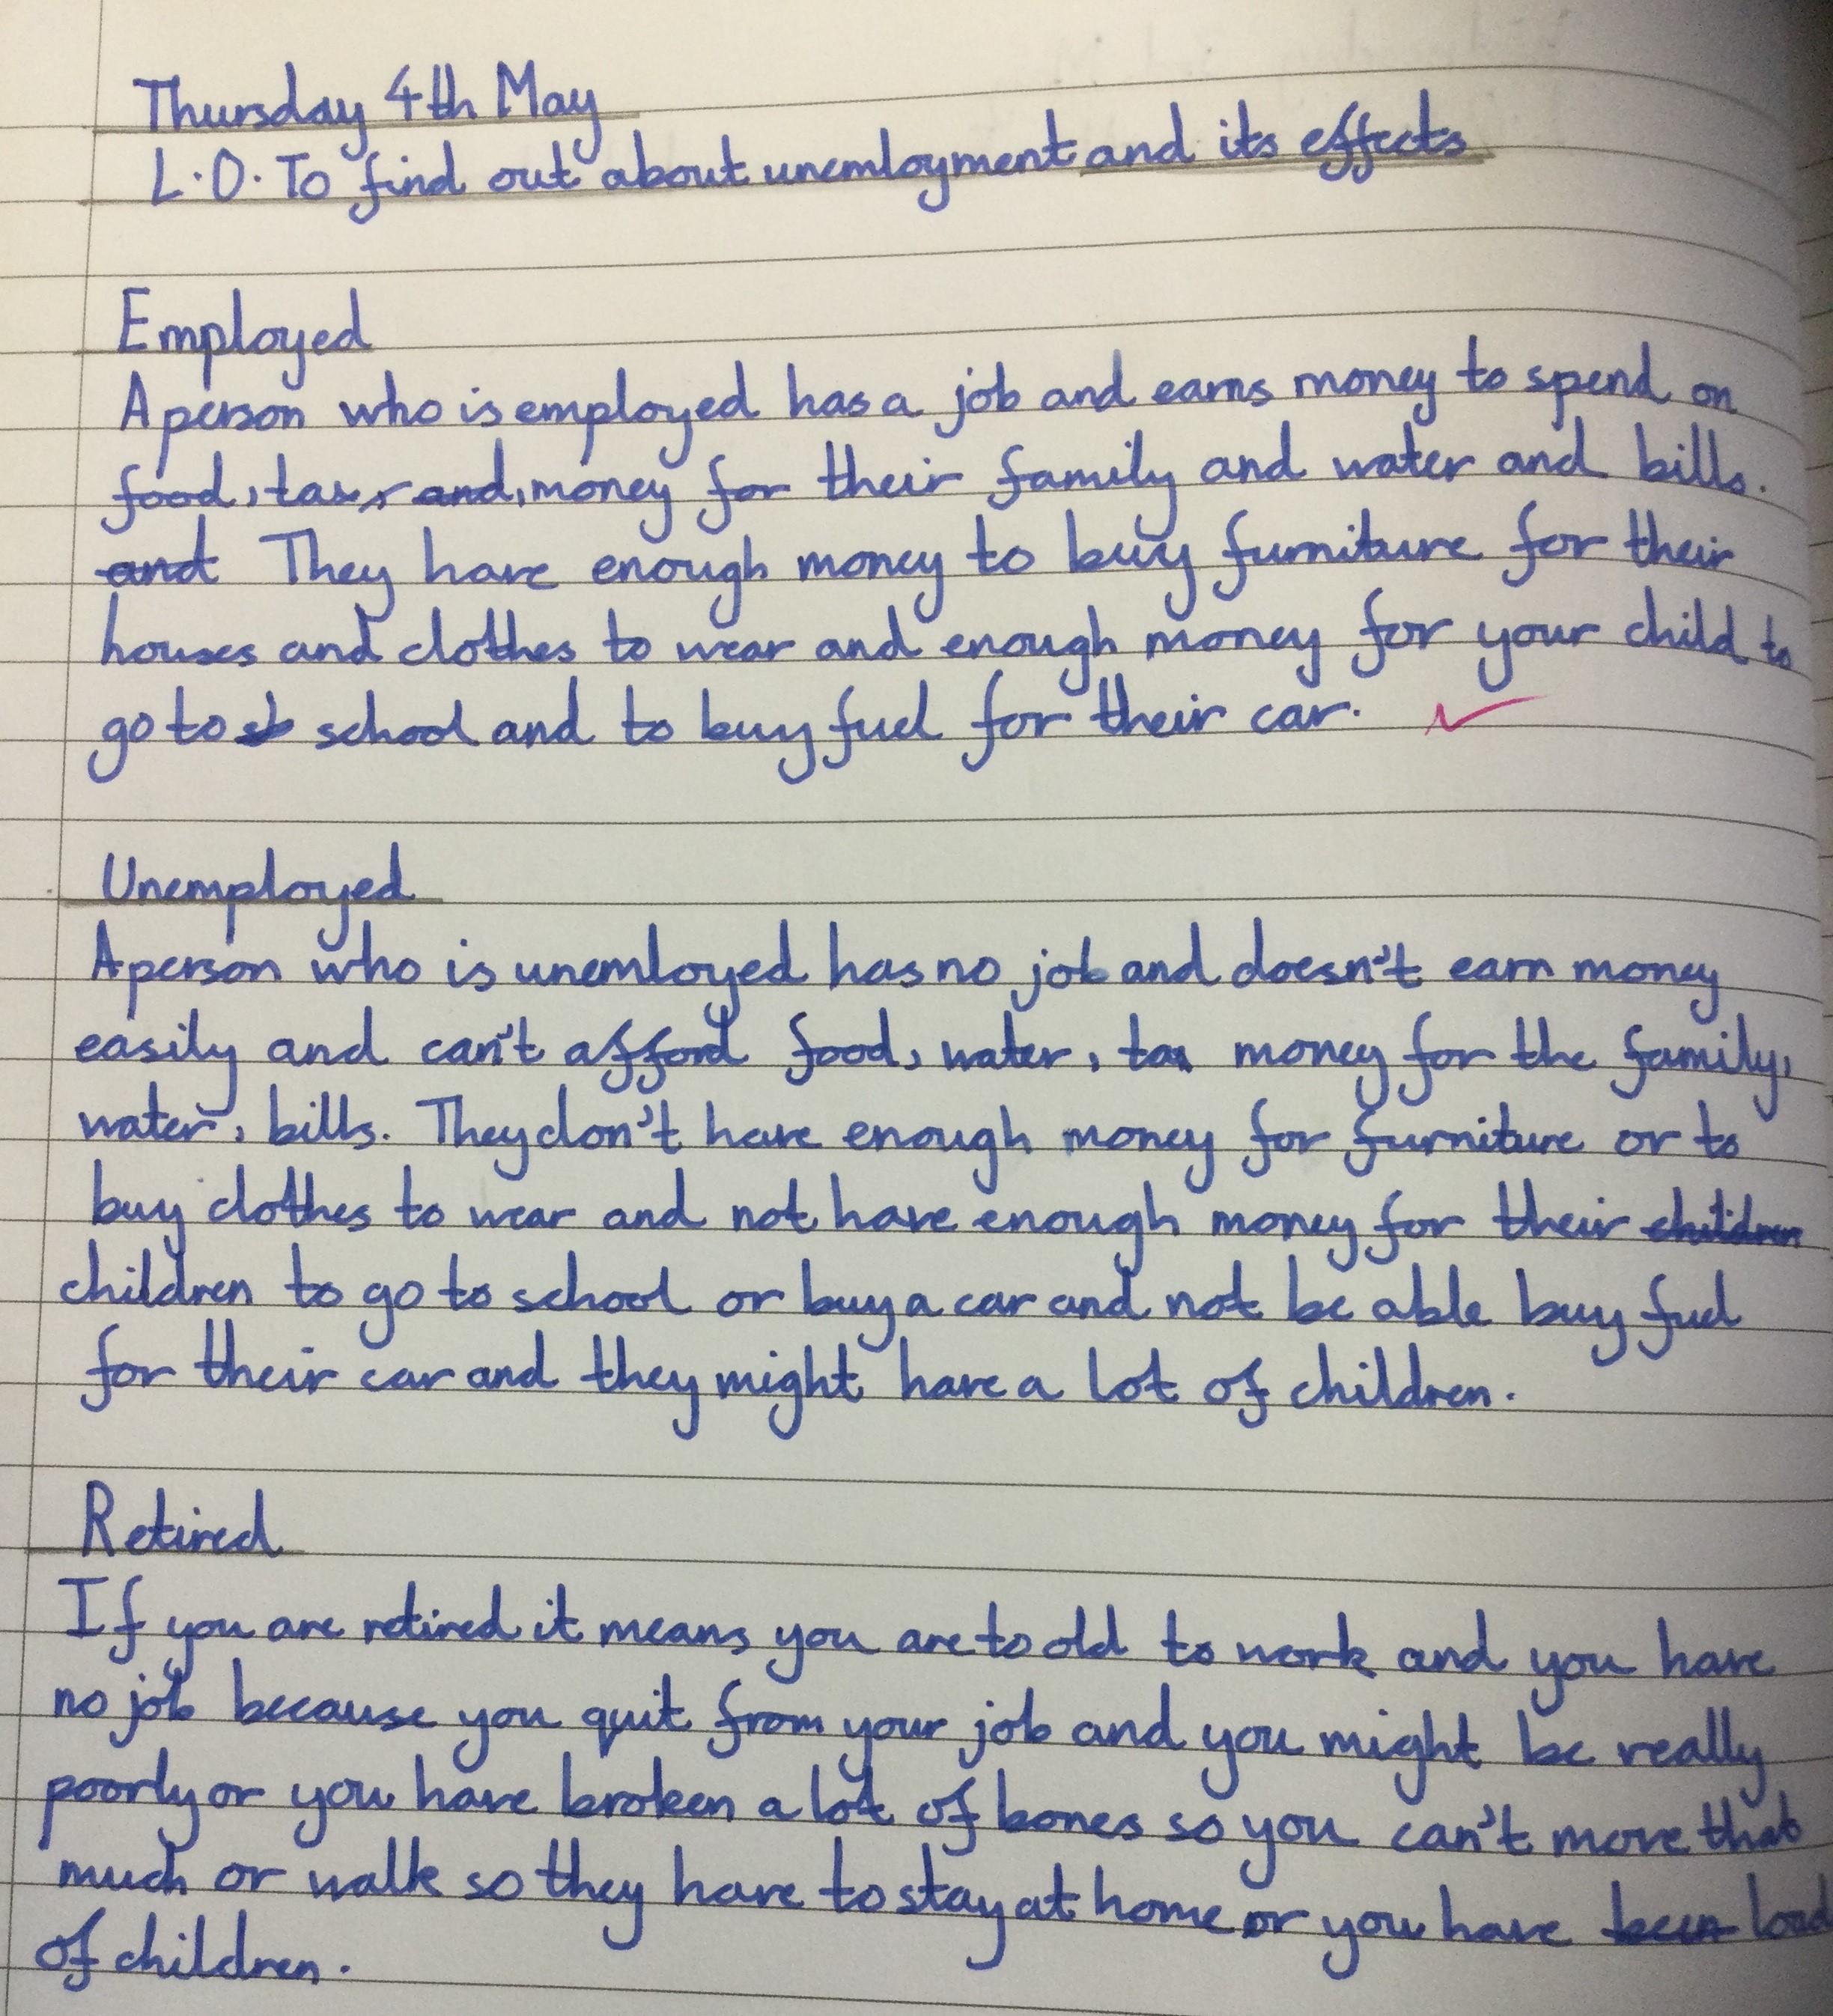 Thursday 4th May
L.O. To find out about unemloyment and its effects
Employed
A person who is employed has a job and earns money to spend on
food, tax, and, money for their family and water and bills.
and They have enough money to buy furniture for their
houses and clothes to wear and enough money for your child to
go to school and to buy fuel for their car.
Unemployed
A person who is unemloyed has no job and doesn't earn money
easily and can't afford food, water, tax money for the family,
water, bills. They don't have enough money for furniture or to
buy clothes to wear and not have enough money for their children
children to go to school or buy a car and not be able buy fuel
for their car and they might have a lot of children.
Retired
If you are retired it means you are to old to work and you have
no job because you quit from your job and you might be really
poorly or you have broken a lot of bones so you can't move that
much or walk so they have to stay at home or you have been load
of children.